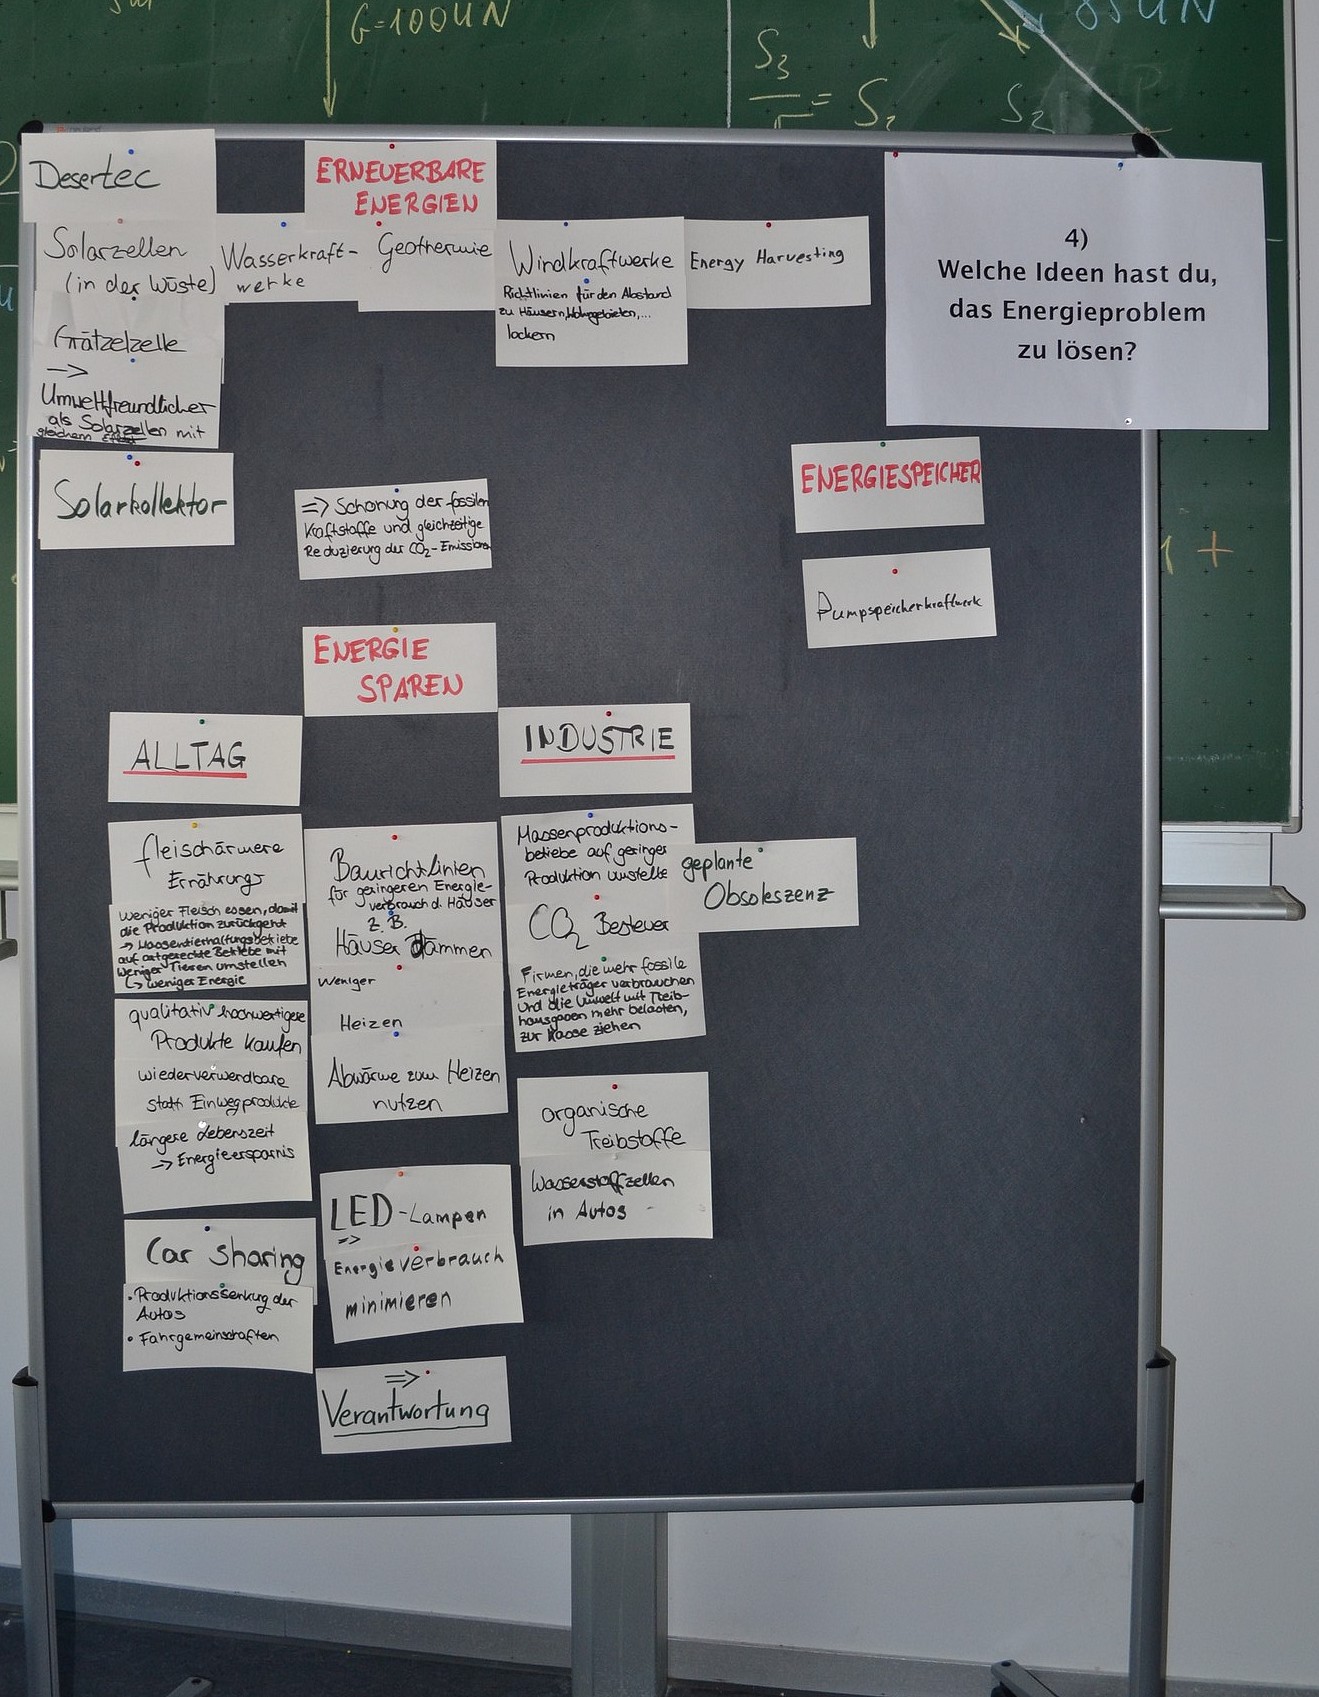 G=100 kN
85 kN
S3
= S2
S2
Desertec
ERNEUERBARE
ENERGIEN
Solarzellen
(in der Wüste)
Wasserkraft-
werke
Geothermie
Windkraftwerke
Richtlinien für den Abstand
zu Häusern, Wohngebieten,...
lockern
Energy Harvesting
4)
Welche Ideen hast du,
das Energieproblem
zu lösen?
Grätzelzelle
=>
Umweltfreundlicher
als Solarzellen mit
gleichem Effekt
Solarkollektor
=> Schonung der fossilen
Kraftstoffe und gleichzeitige
Reduzierung der CO2-Emissionen
ENERGIESPEICHER
Pumpspeicherkraftwerk
ENERGIE
SPAREN
ALLTAG
fleischärmere
Ernährung
weniger Fleisch essen, damit
die Produktion zurückgeht
-> Massentierhaltungsbetriebe
auf artgerechte Betriebe mit
weniger Tieren umstellen
-> weniger Energie
qualitativ hochwertigere
Produkte kaufen
wiederverwendbare
statt Einwegprodukte
längere Lebenszeit
-> Energieersparnis
Car sharing
• Produktionssenkung der
Autos
• Fahrgemeinschaften
Baurichtlinien
für geringeren Energie-
verbrauch d. Häuser
z.B.
Häuser dämmen
weniger
Heizen
Abwärme zum Heizen
nutzen
LED-Lampen
=>
Energieverbrauch
minimieren
=>
Verantwortung
INDUSTRIE
Massenproduktions-
betriebe auf geringer
Produktion umstelle
geplante
Obsoleszenz
CO2 Besteuer
Firmen, die mehr fossile
Energieträger verbrauchen
und die Umwelt mit Treib-
hausgasen mehr belasten,
zur Kasse ziehen
organische
Treibstoffe
Wasserstoffzellen
in Autos